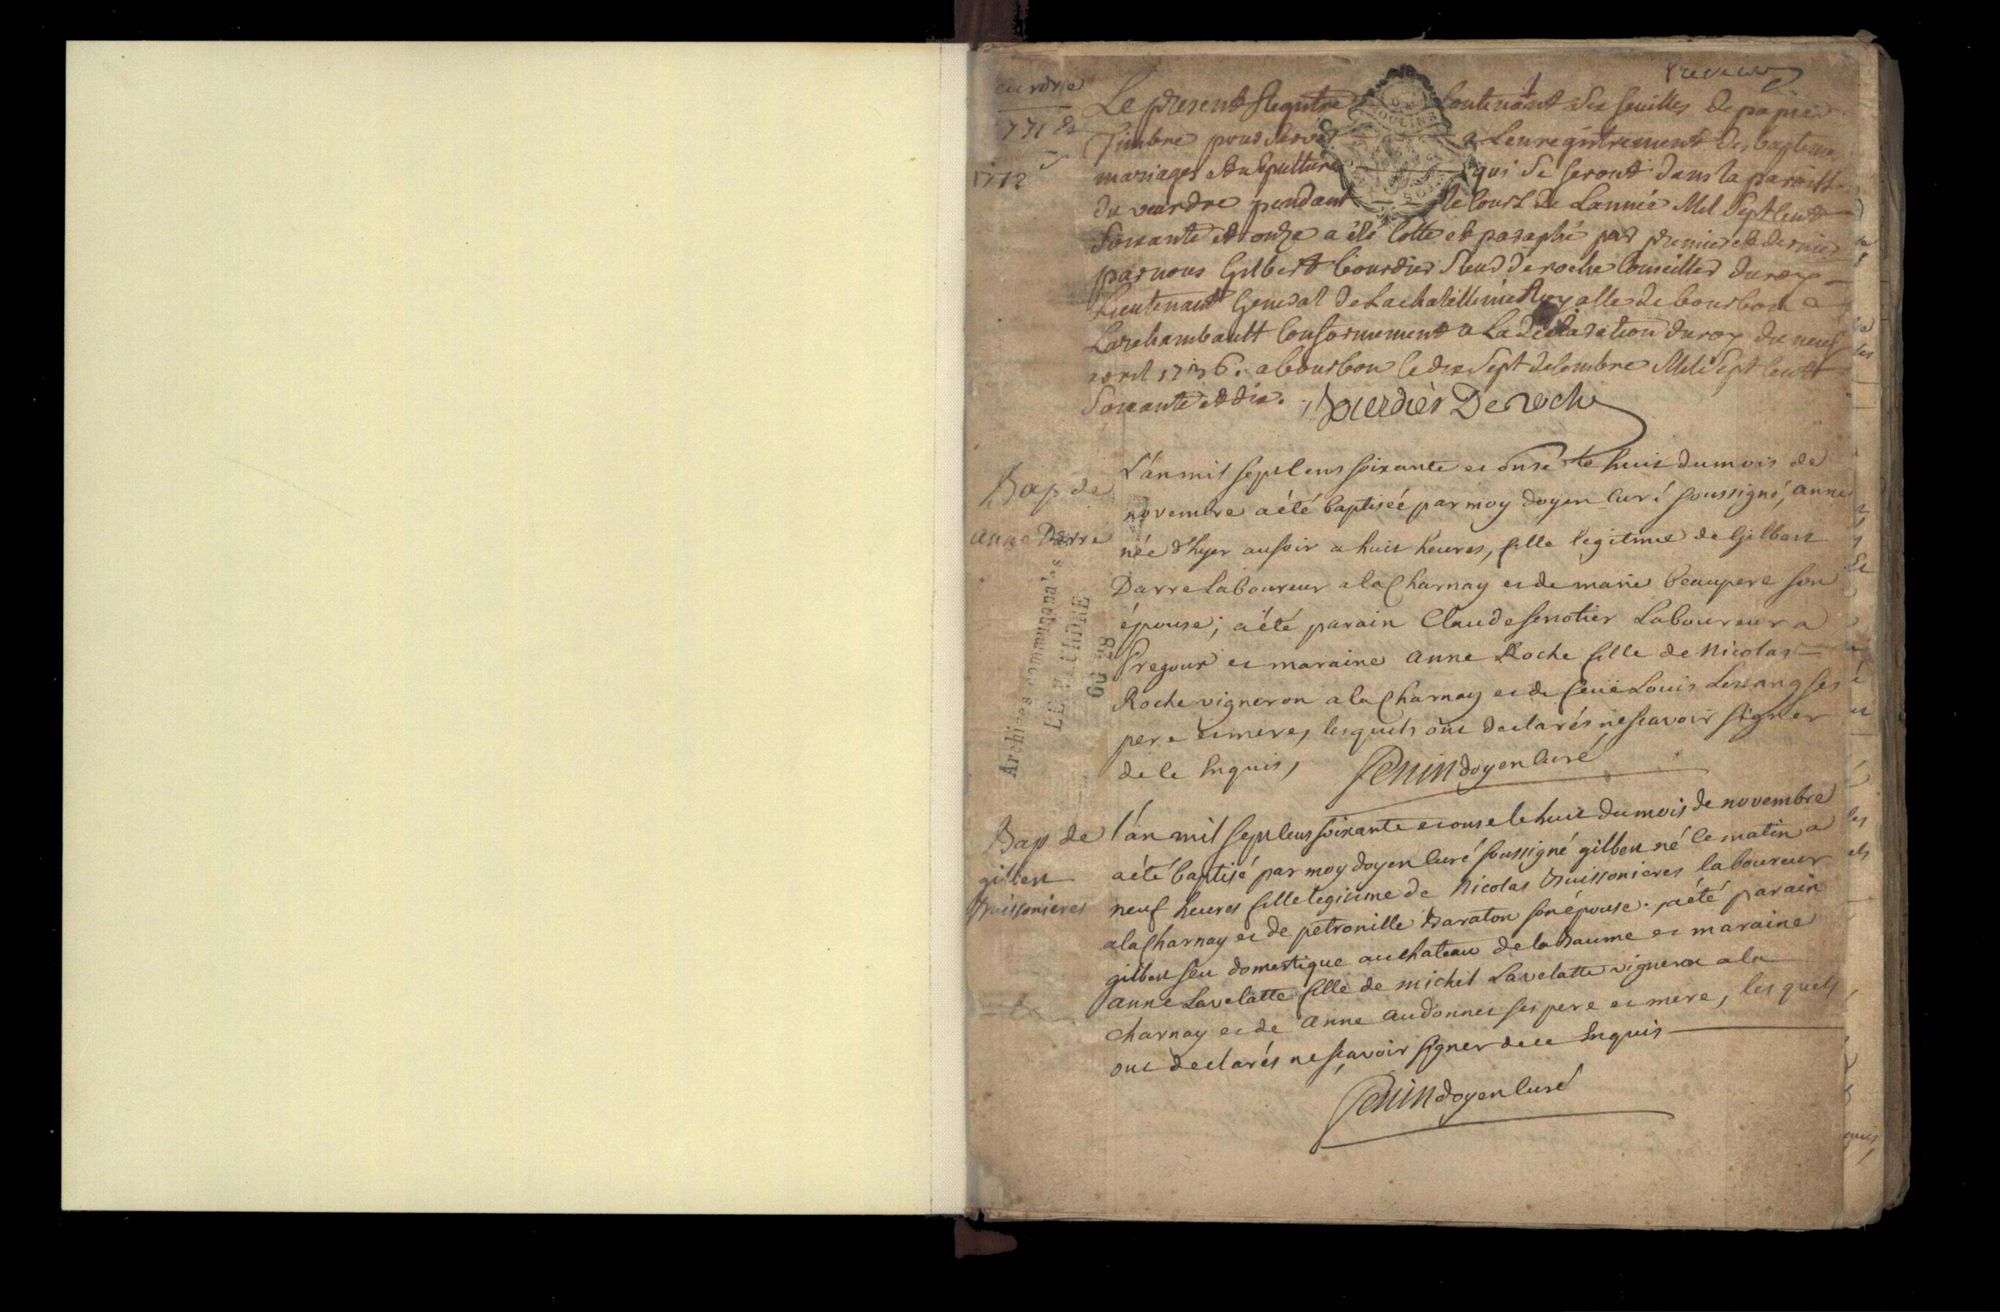 premier
Le present Registre Contenant dix feuilles de papier
Timbre pour servir a Lenregistrement des baptemes
mariages et sepulture qui se feront dans la paroisse
du veurdre pendant le Cours de Lannée Mil Sept Cent
Soixante et onze a été Cotté et paraphé par premier et dernier
par nous Gilbert bourdier sieur deroche Conseiller du roy
Lieutenant General de La chatellenie Royalle de bourbon
Larchambault Conformement a La Declaration du roy du neuf
avril 1736. a bourbon le dix Sept decembre Mil Sept Cent
Soixante et dix. Bourdier De roche
1771 &
1772
Bap de
anne Darre
L'an mil sept Cens soixante et onse le huit du mois de
novembre a été baptisée par moy doyen Curé soussigné, anne
née d'hyer au soir a huit heures, fille legitime de Gilbert
Darre Laboureur a la Charnay et de marie beaupere son
épouse; a été parain Claude senotier Laboureur a
Pregour et maraine anne Roche fille de Nicolas
Roche vigneron a la Charnay et de feüe Louis ses
pere et mere, lesquels ont declarés ne scavoir signer
de ce Enquis, Penin doyen Curé
Archives communales
LE VEURDRE
Bap de
gilbert
Buissonieres
l'an mil sept Cens soixante et onse le huit du mois de novembre
a été baptisé par moy doyen Curé soussigné gilbert né le matin a
neuf heures fille legitime de Nicolas Buissonieres laboureur
a la Charnay et de petronille Baraton son épouse. a été parain
gilbert feu domestique au chateau de la Baume et maraine
anne Lavelatte fille de michel Lavelatte vigneron a la
Charnay et de anne audonnet ses pere et mere, lesquels
ont declarés ne scavoir signer de ce Enquis
Penin doyen Curé